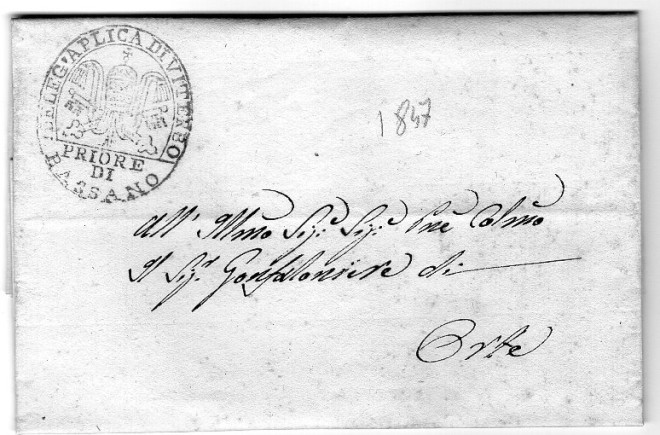 DELEG. APLICA DI VITERBO
PRIORE
DI
BASSANO
1847
All' Illmo Sig.r Sig.r Pne Colmo
Il Sig.r Gonfaloniere di
Orte